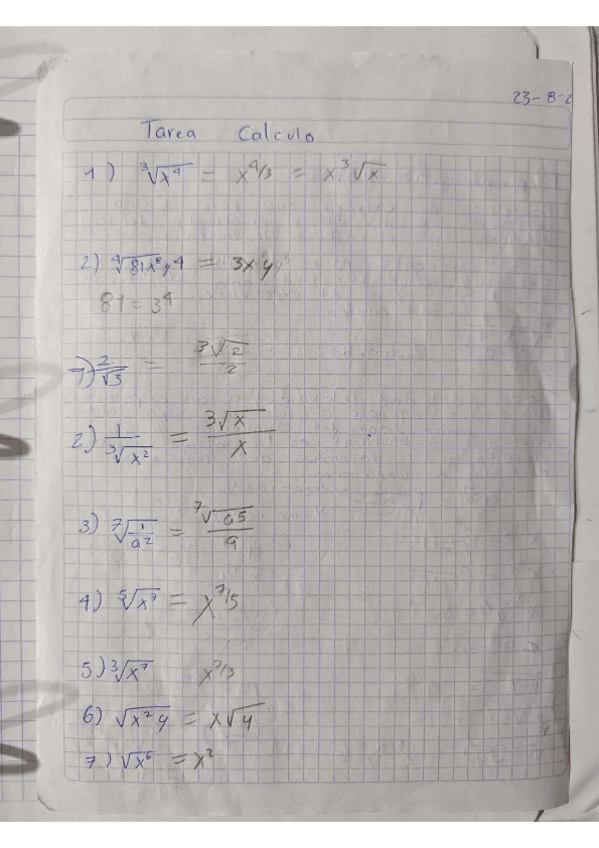 23-8-2
Tarea Calculo
1) ∛x⁴ = x^4/3 = x ∛x
2) ∜81x⁸y4 = 3x y
81 = 3⁴
1) 2/√3 = 3√2/2
2) 1/∛x² = 3√x/x
3) ⁷√1/a² = ⁷√a5/a
4) ⁵√x⁷ = x^7/5
5) ∛x⁷ x^7/3
6) √x²y = x√y
7) √x⁶ = x²